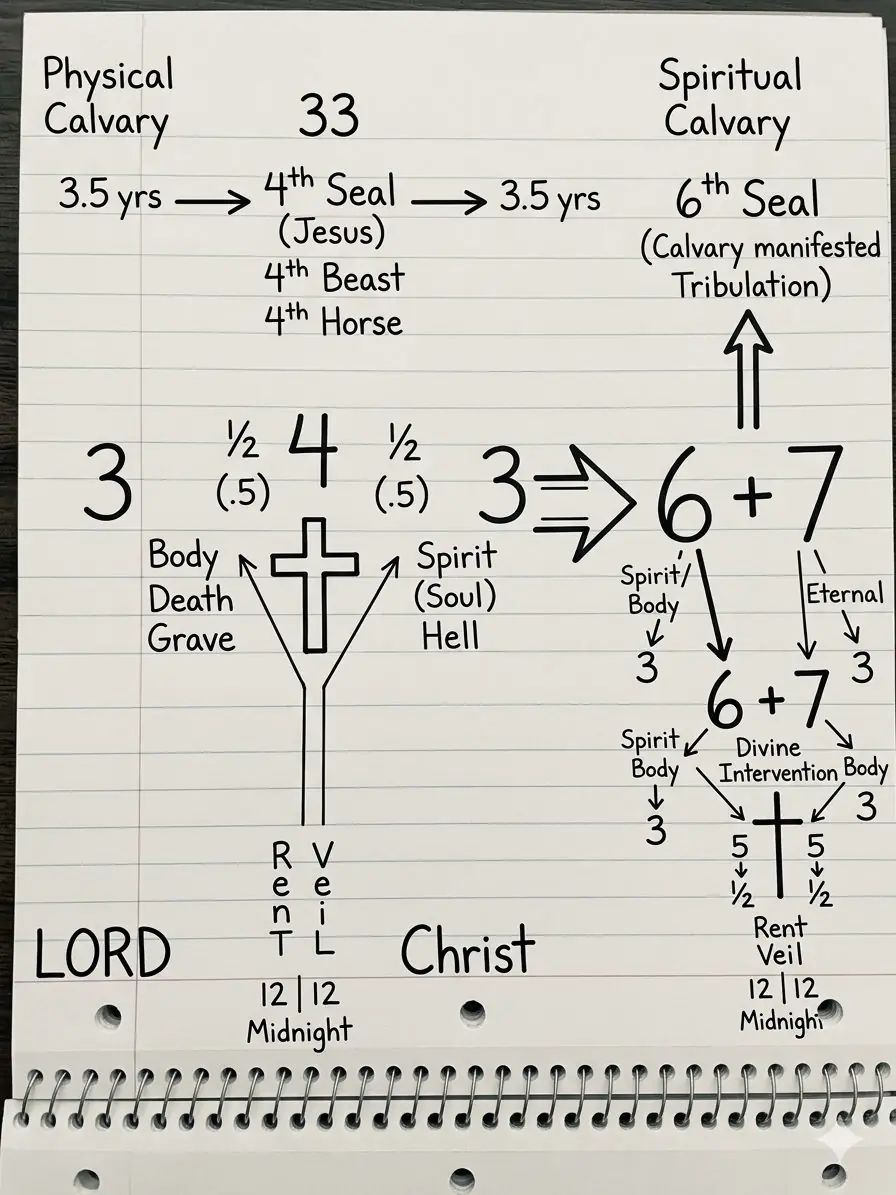 Physical
Calvary
33
Spiritual
Calvary
3.5 yrs → 4th Seal → 3.5 yrs
(Jesus)
4th Beast
4th Horse
6th Seal
(Calvary manifested
Tribulation)
3
½
(.5)
4
½
(.5)
3
6 + 7
Body
Death
Grave
Spirit
(Soul)
Hell
Spirit/
Body
3
Eternal
3
6 + 7
Spirit
Body
3
Divine
Intervention
Body
3
5
½
5
½
Rent
Veil
12 | 12
Midnight
RenT
VeiL
12 | 12
Midnight
LORD
Christ